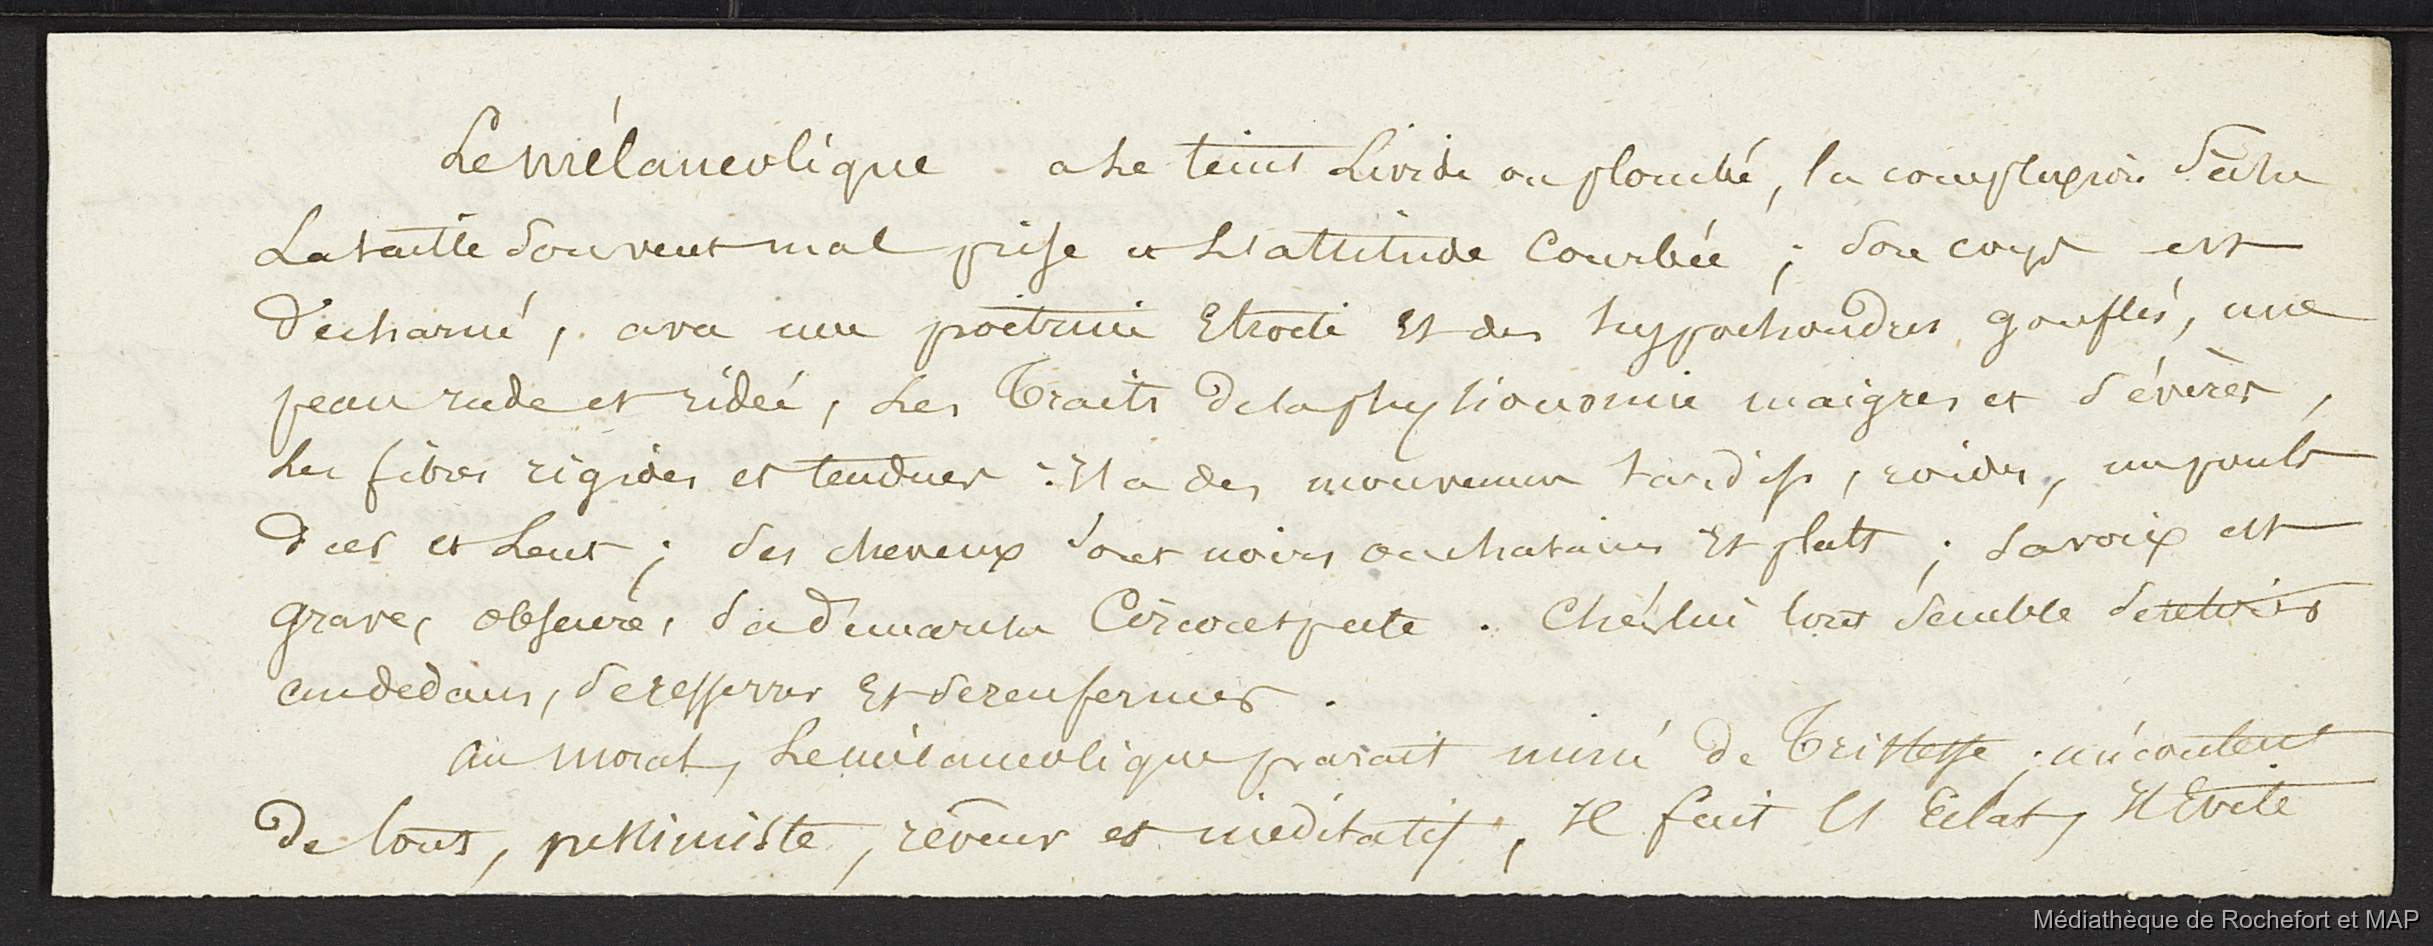 Le mélancolique a le teint livide ou plombé, la complexion sèche
La taille souvent mal prise et L'attitude Courbée ; son corps est
décharné, avec une poitrine Etroite Et des hypochondres gonflés, une
peau rude et ridée, Les Traits de la physionomie maigres et sévères,
Les fibres rigides et tendues : Il a des mouvemens tardifs, roides, un pouls
dur et Lent ; ses cheveux sont noirs ou chatains Et plats ; sa voix est
grave, obscure, sa démarche Circonspecte . Chés lui tout semble se retirer
au dedans, se resserrer Et se renfermer .
Au moral, Le mélancolique parait miné de Tristesse ; mécontent
De tout, pessimiste, rêveur et méditatif, Il fuit L'Eclat, Il Evite
Médiathèque de Rochefort et MAP